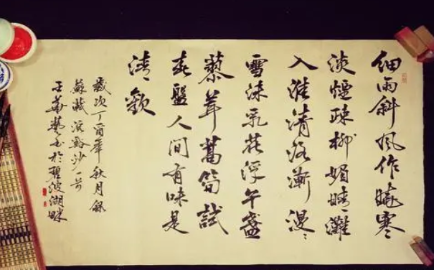 細雨斜風作曉寒
淡煙疎柳媚晴灘
入淮清洛漸漫〻
雪沫乳花浮午盞
蓼茸蒿筍試
春盤人間有味是
清歡
歲次丁酉年秋月錄
蘇軾浣溪沙一首
於碧波湖畔